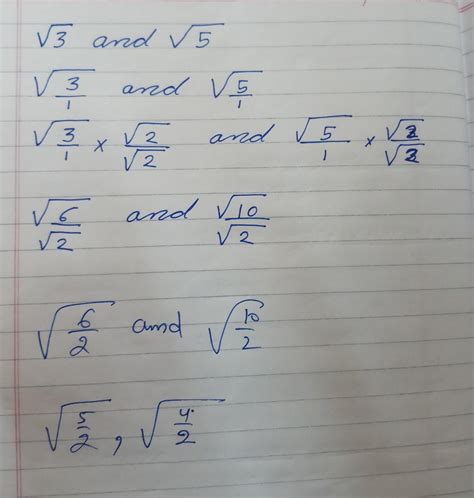 √3 and √5
√3/1 and √5/1
√3/1 × √2/√2 and √5/1 × √2/√2
√6/√2 and √10/√2
√6/2 and √10/2
√5/2 , √4/2